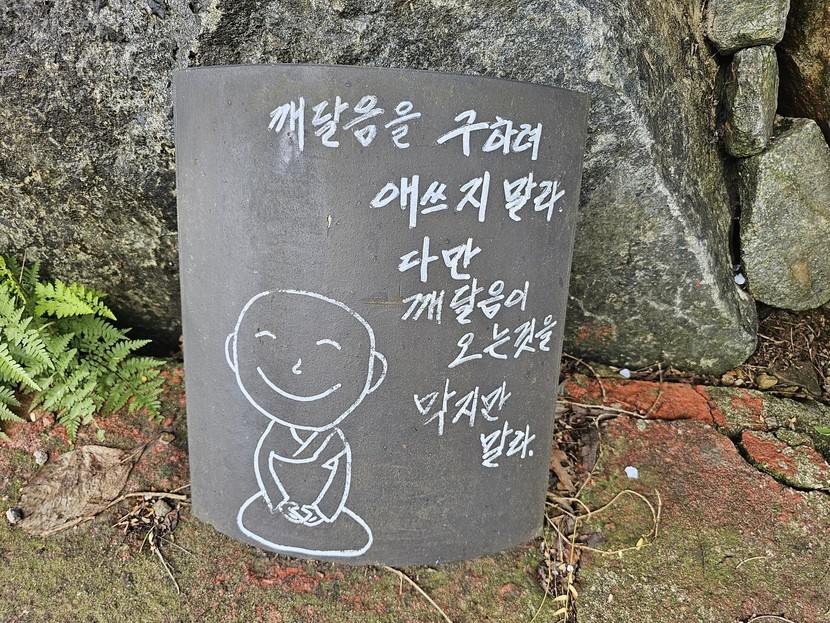 깨달음을 구하려
애쓰지 말라.
다만
깨달음이
오는것을
막지만
말라.